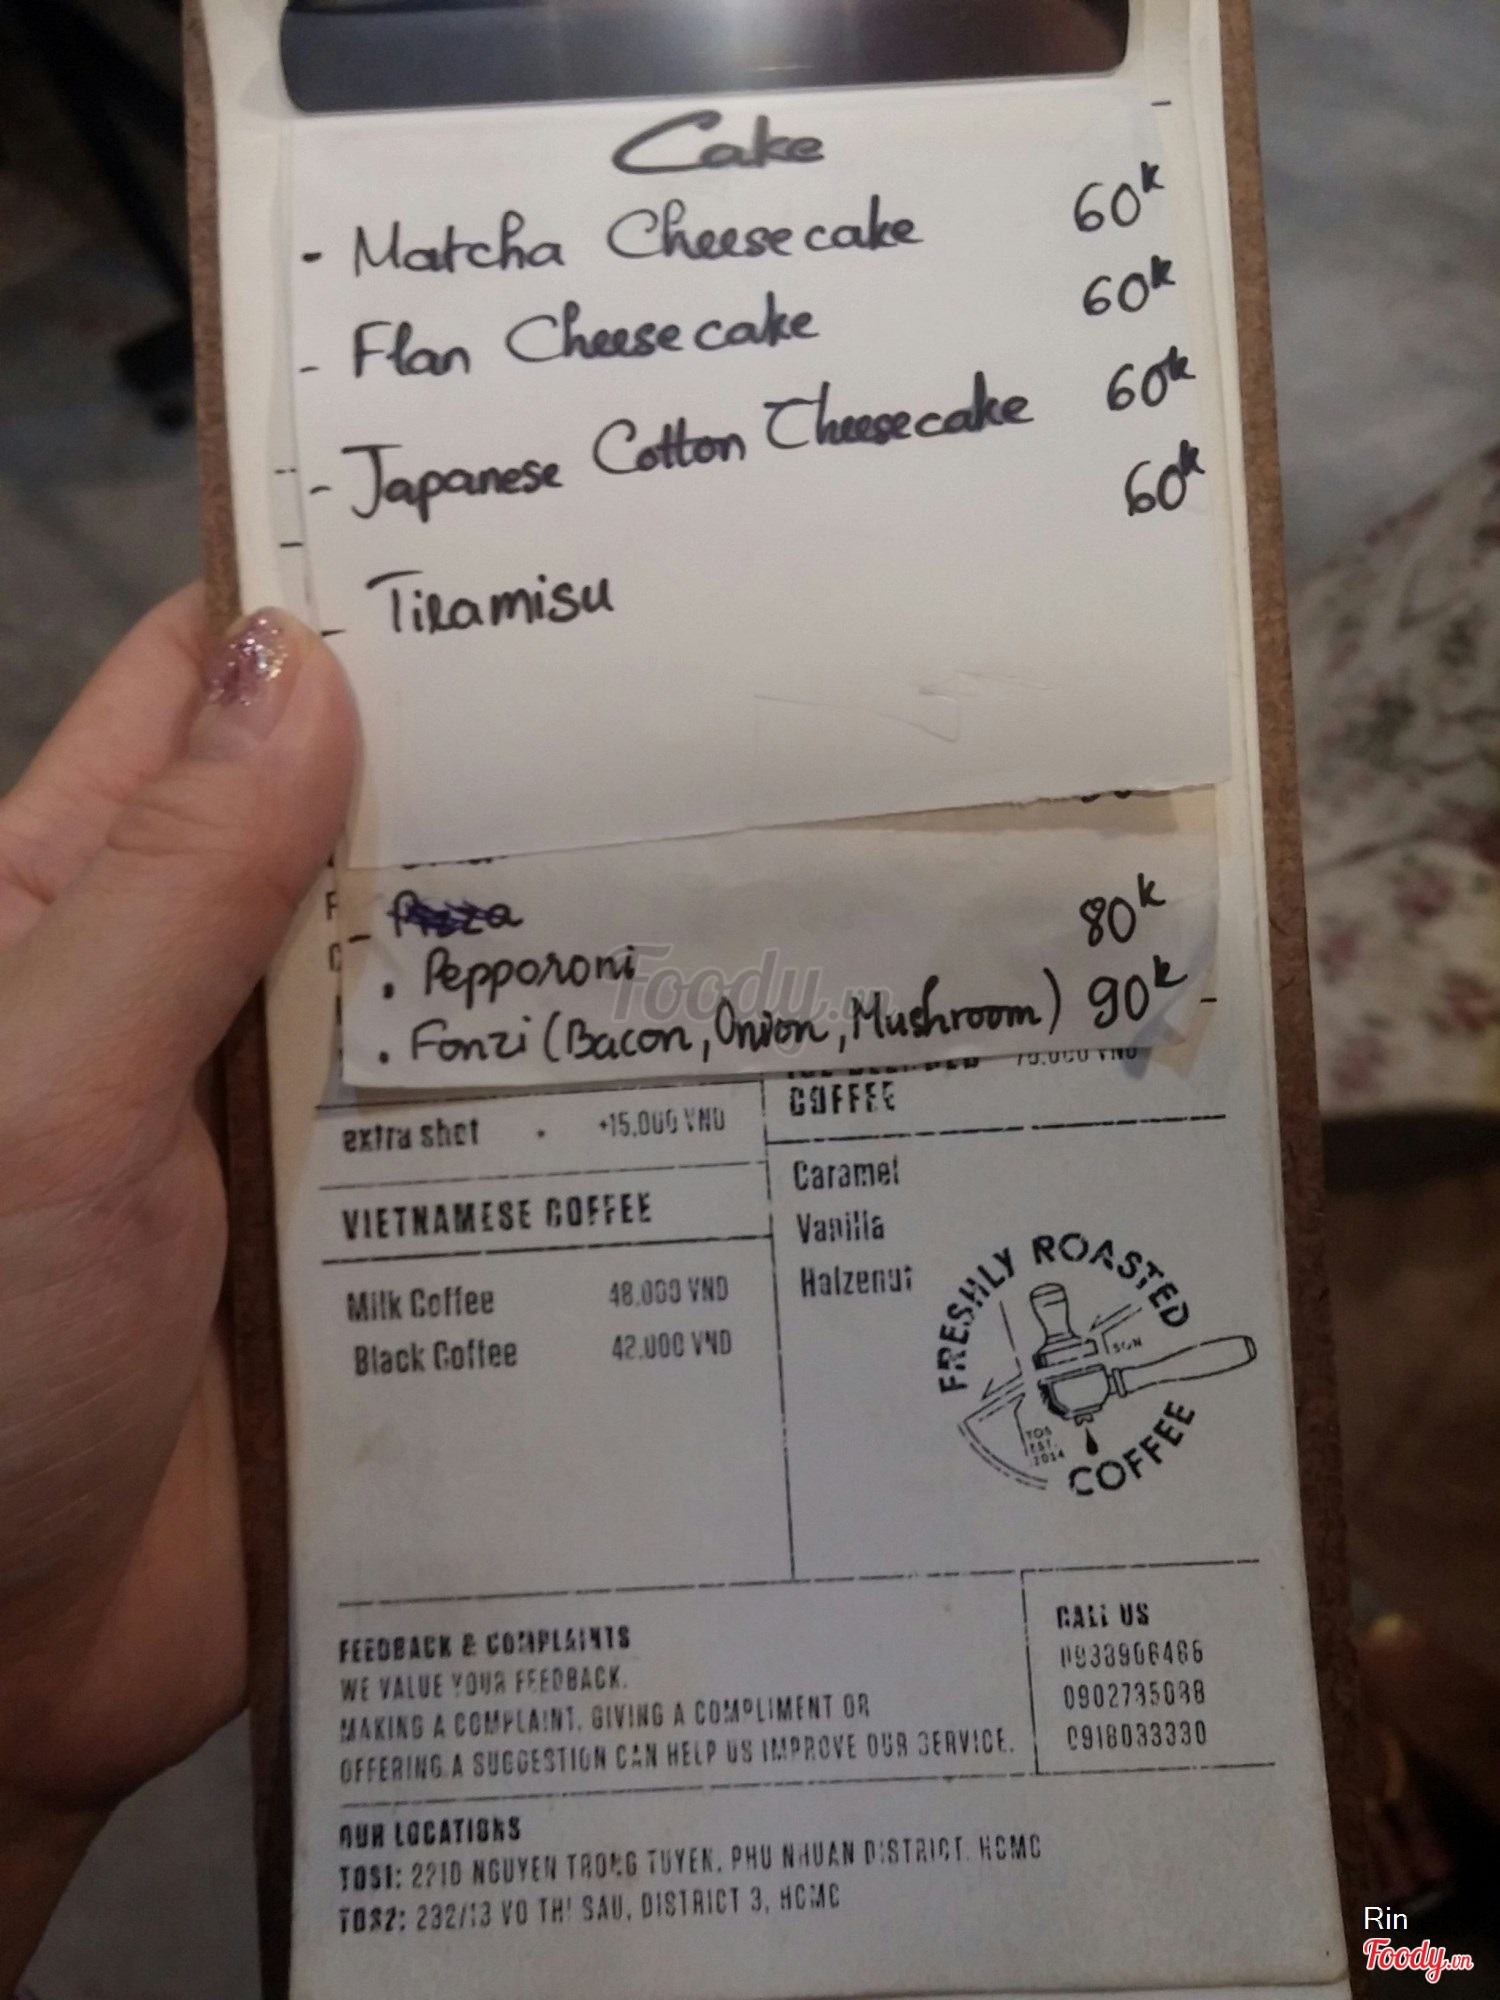 Cake
- Matcha Cheesecake 60k
- Flan Cheesecake 60k
- Japanese Cotton Cheesecake 60k
- Tiramisu 60k
- Pizza
. Pepperoni 80k
. Fonzi (Bacon, Onion, Mushroom) 90k
extra shot . +15.000 VND
VIETNAMESE COFFEE
Milk Coffee 48.000 VND
Black Coffee 42.000 VND
COFFEE
Caramel
Vanilla
Halzenut
FRESHLY ROASTED
COFFEE
SIGN
TOS
EST.
2014
FEEDBACK & COMPLAINTS
WE VALUE YOUR FEEDBACK.
MAKING A COMPLAINT, GIVING A COMPLIMENT OR
OFFERING A SUGGESTION CAN HELP US IMPROVE OUR SERVICE.
CALL US
0918033330
OUR LOCATIONS
TOS1: NGUYEN TRONG TUYEN, PHU NHUAN DISTRICT, HCMC
TOS2: 232/13 VO THI SAU, DISTRICT 3, HCMC
Foody.vn
Rin
Foody.vn